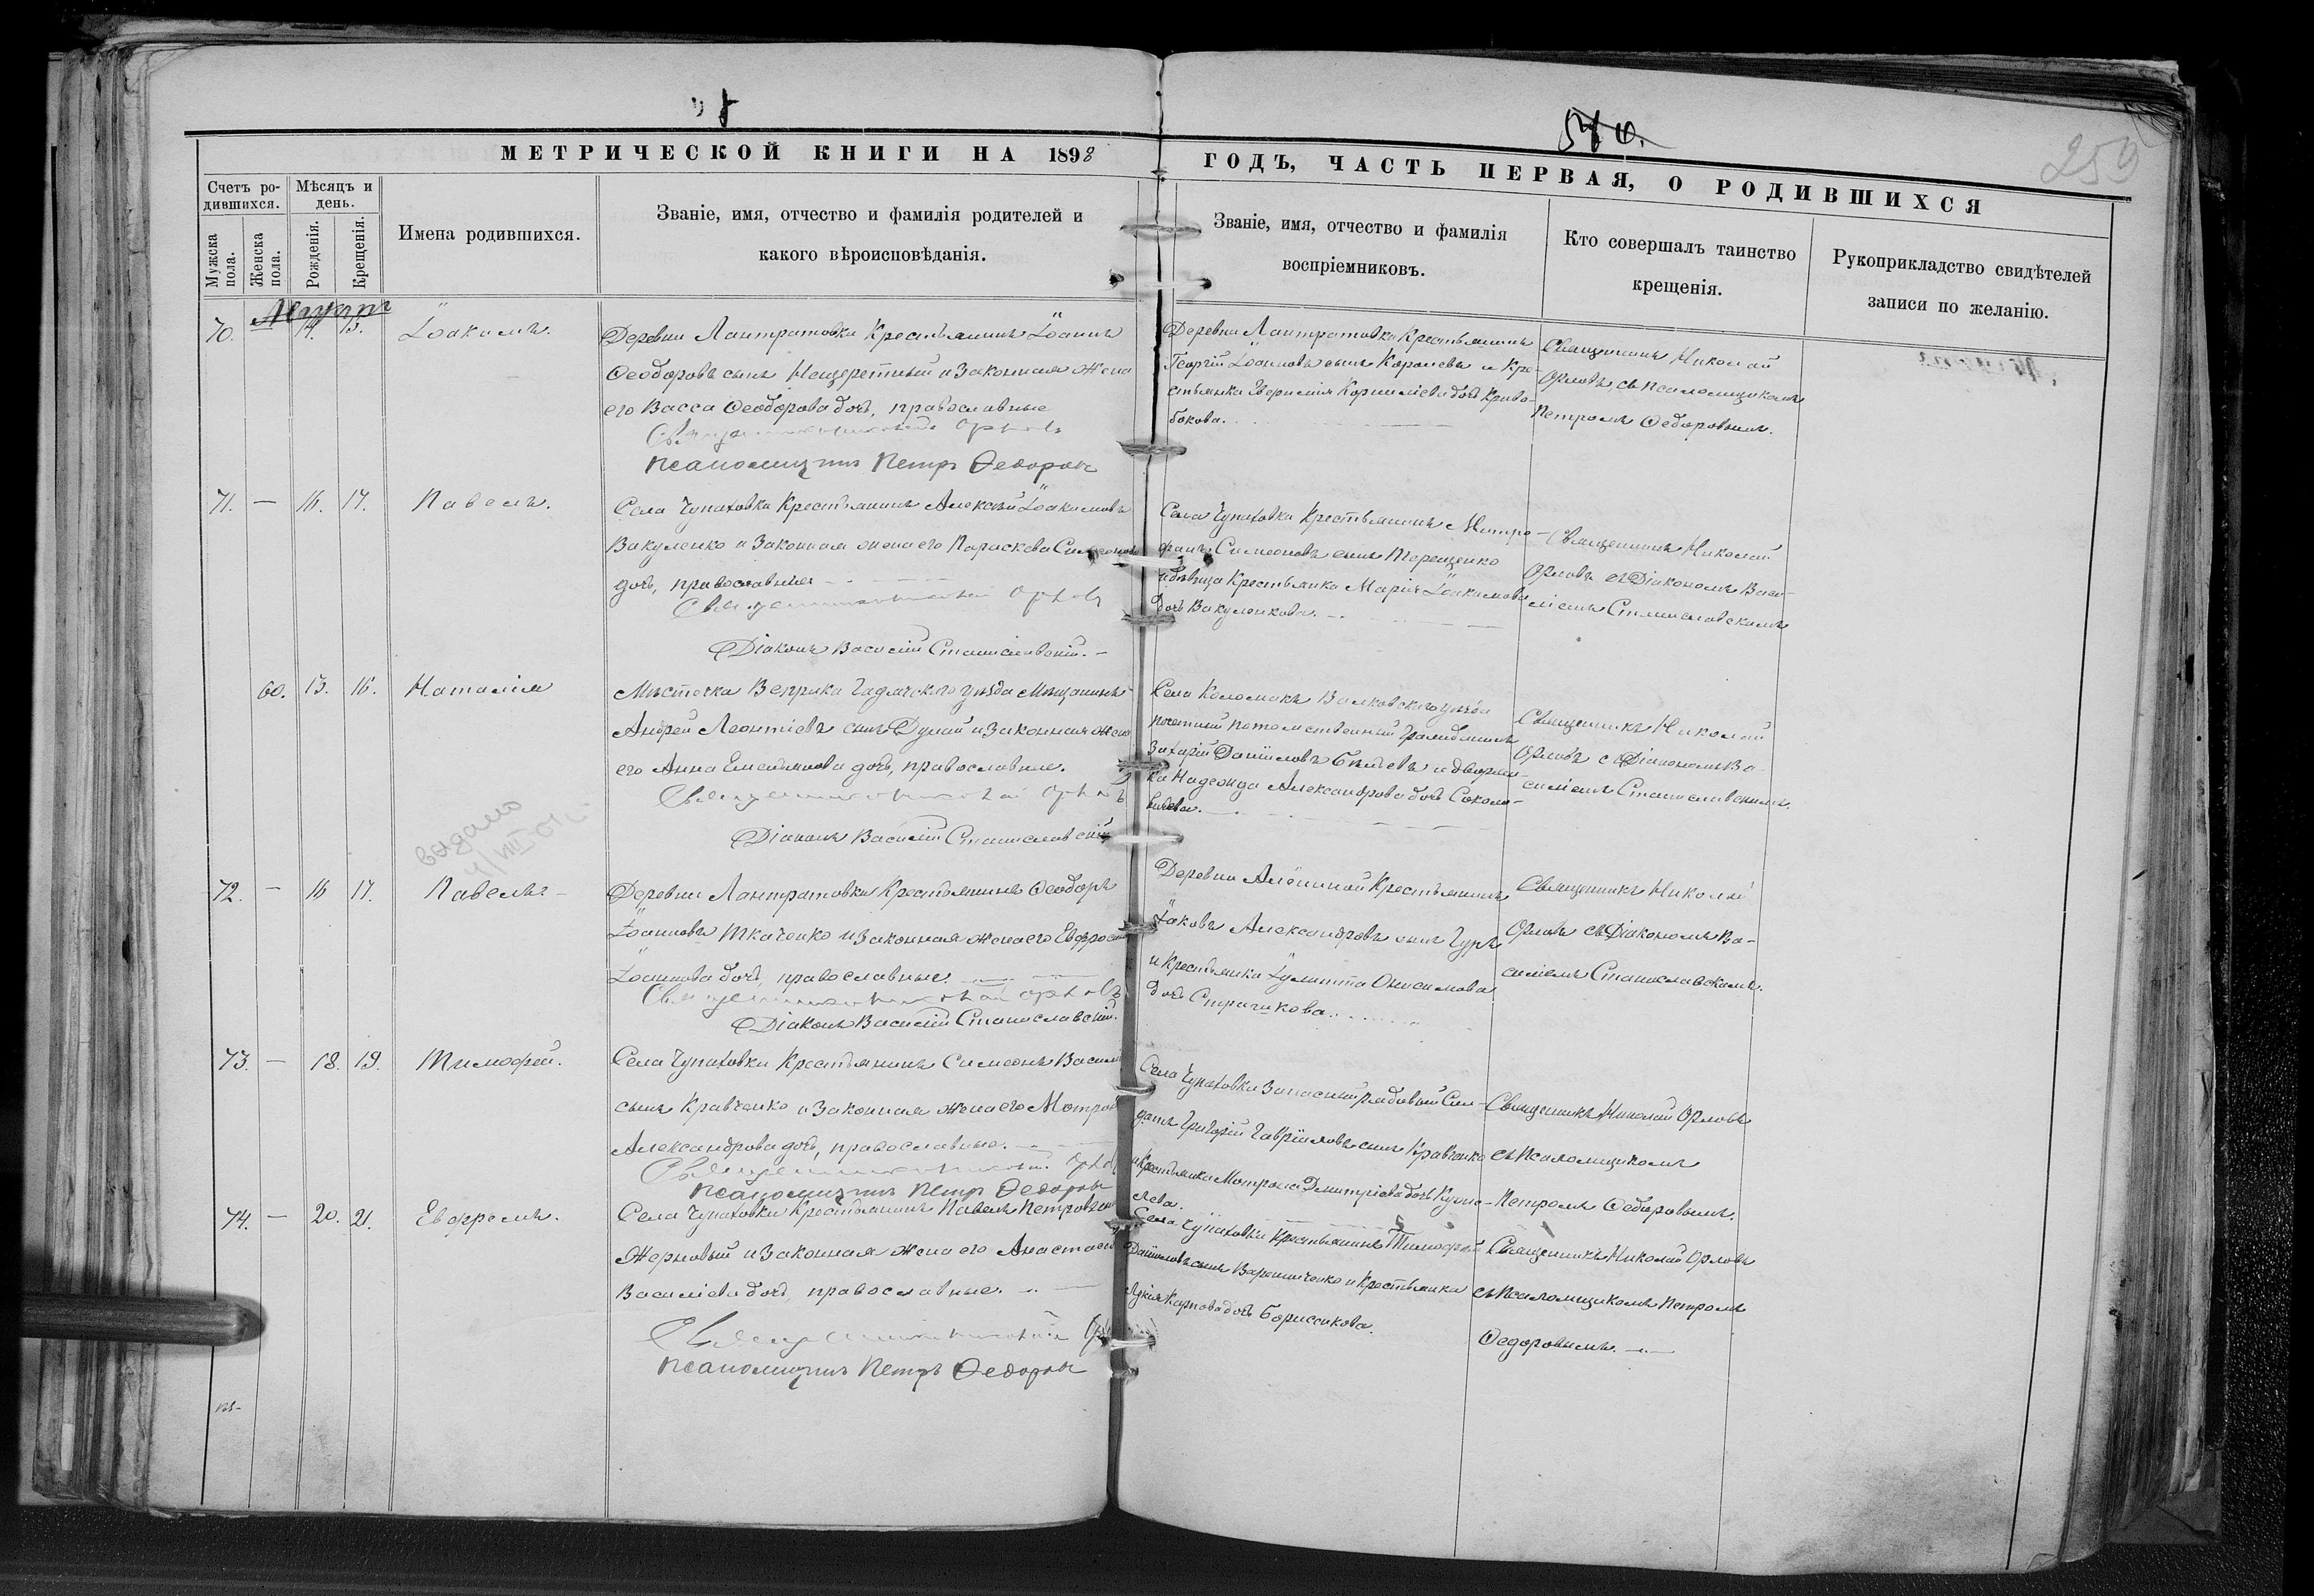 540.
250
МЕТРИЧЕСКОЙ КНИГИ НА 1898
ГОДЪ, ЧАСТЬ ПЕРВАЯ, О РОДИВШИХСЯ
Счетъ ро-
дившихся.
Мужска
пола.
Женска
пола.
Мѣсяцъ и
день.
Рожденія.
Крещенія.
Имена родившихся.
Званіе, имя, отчество и фамилія родителей и
какого вѣроисповѣданія.
Званіе, имя, отчество и фамилія
воспріемниковъ.
Кто совершалъ таинство
крещенія.
Рукоприкладство свидѣтелей
записи по желанію.
70. 14. 15. Іоакимъ
Деревни Лантратовки Крестьянинъ Іоаннъ
Ѳеодоровъ сынъ Нещеретный и законная жена
его Васса Ѳеодорова дочь, православные
Священникъ Николай Орловъ
Псаломщикъ Петръ Ѳедоровъ
Деревни Лантратовки Крестьянинъ
Георгій Іоанновъ сынъ Королевъ и Кре-
стьянка Корниліева дочь Криво-
бокова.
Священникъ Николай
Орловъ съ псаломщикомъ
Петромъ Ѳедоровымъ.
71. — 16. 17. Павелъ.
Села Чупаховки Крестьянинъ Алексѣй Іоакимовъ
Вакуленко и законная жена его Параскева Симеонова
дочь, православные
Священникъ Николай Орловъ
Діаконъ Василій Станиславскій. —
Села Чупаховки Крестьянинъ Митро-
фанъ Симеоновъ сынъ Терещенко
и дѣвица Крестьянка Марія Іоакимова
дочь Вакуленкова.
Священникъ Николай
Орловъ съ Діакономъ Васи-
ліемъ Станиславскимъ
60. 15. 16. Наталія
Мѣстечка Веприка Гадячскаго уѣзда Мѣщанинъ
Андрей Леонтіевъ сынъ Дунай и законная жена
его Анна Емельянова дочь, православные.
Священникъ Николай Орловъ
Діаконъ Василій Станиславскій
Села Коломакъ Валковскаго уѣзда
почетный потомственный Гражданинъ
Захарій Даніиловъ Бѣляевъ и дворян-
ка Надежда Александрова дочь Соколо-
Священникъ Николай
Орловъ съ Діакономъ Ва-
силіемъ Станиславскимъ.
выдано
72. — 16 17. Павелъ —
Деревни Лантратовки Крестьянинъ Ѳеодоръ
Іоанновъ Ткаченко и законная жена его Евфросинія
Іоаннова дочь, православные.
Священникъ Николай Орловъ
Діаконъ Василій Станиславскій.
Деревни Алёшиной Крестьянинъ
Іаковъ Александровъ сынъ Гуръ
и Крестьянка Іулитта Онисимова
дочь Стричикова.
Священникъ Николай
Орловъ съ Діакономъ Ва-
силіемъ Станиславскимъ.
73. — 18. 19. Тимоѳей.
Села Чупаховки Крестьянинъ Симеонъ Василі
сынъ Кравченко и законная жена его Матрона
Александрова дочь, православные.
Священникъ Николай Орловъ
Псаломщикъ Петръ Ѳедоровъ
Села Чупаховки Запасный рядовый Сол-
датъ Григорій Гавріиловъ сынъ Кравченко
и Крестьянка Матрона Димитріева дочь
лева.
Священникъ Николай Орловъ
съ Псаломщикомъ
Петромъ Ѳедоровымъ.
74. — 20. 21. Ефремъ.
Села Чупаховки Крестьянинъ Павелъ Петровъ сынъ
Жерновый и законная жена его Анастасія
Василіева дочь, православные.
Священникъ Николай Ор
Псаломщикъ Петръ Ѳедоровъ
Села Чупаховки Крестьянинъ Тимоѳей
Даніиловъ сынъ и Крестьянка
Лукія Карпова дочь Бориссикова.
Священникъ Николай Орловъ
съ Псаломщикомъ Петромъ
Ѳедоровымъ.